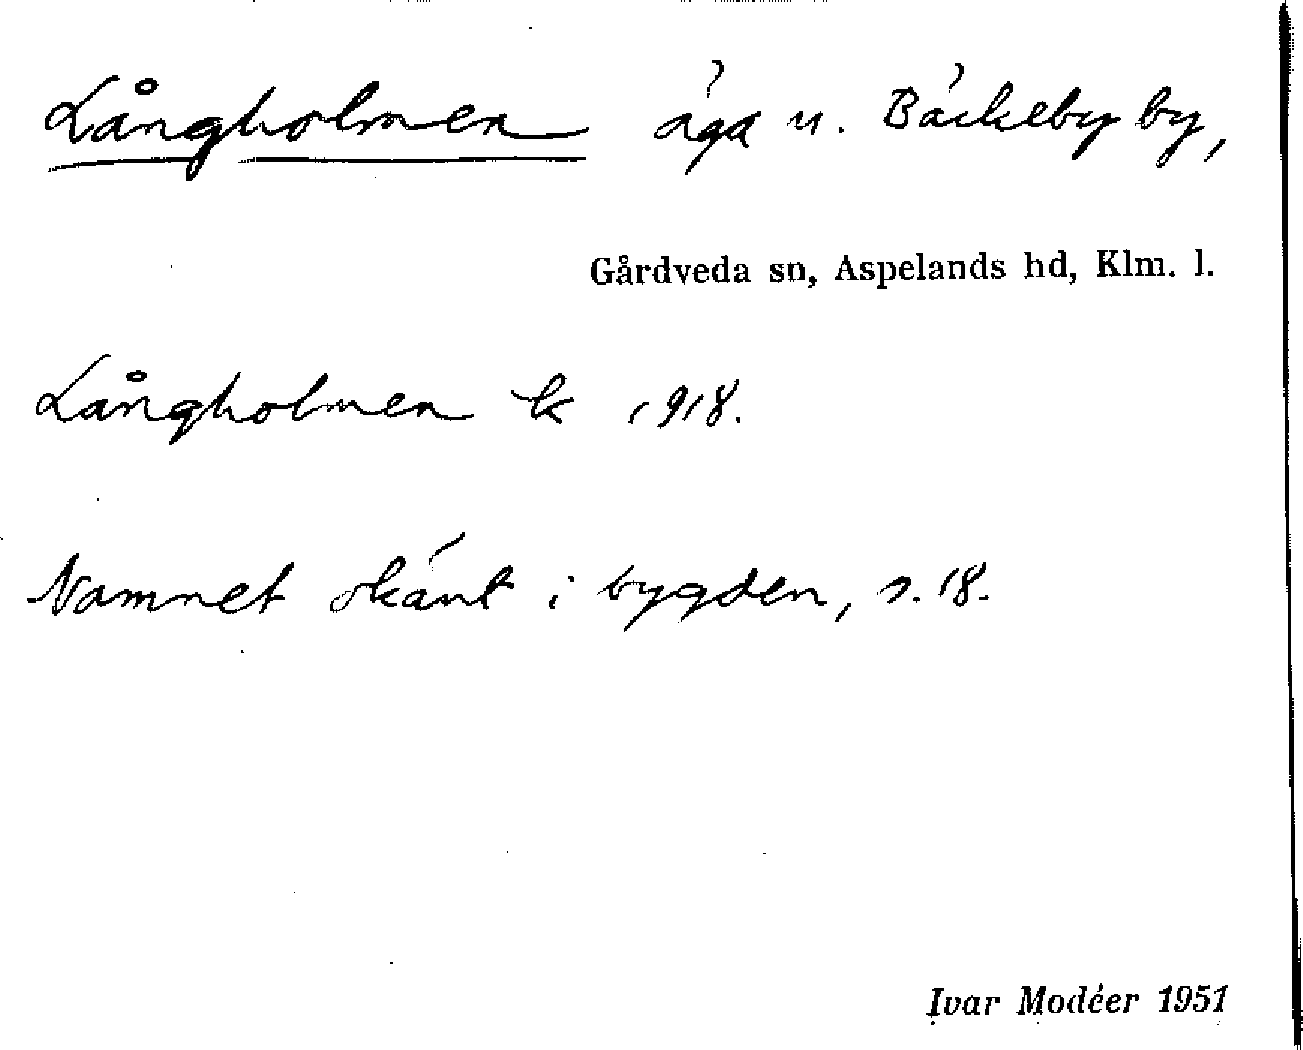 Långholmen äga u. Bäckeby by,
Gårdveda sn, Aspelands hd, Klm. l.
Långholmen lk 1918.
Namnet okänt i bygden, s. 18.
Ivar Modéer 1951